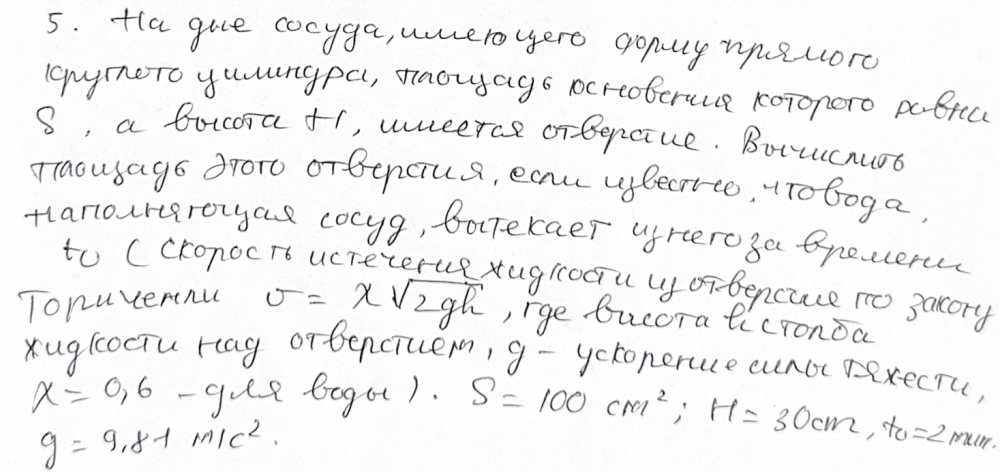 5. На дне сосуда, имеющего форму прямого
круглого цилиндра, площадь основения которого равна
S, а высота H, имеется отверстие. Вычислить
площадь этого отверстия, если известно, что вода,
наполняющая сосуд, вытекает из него за времени
t₀ (скорость истечения жидкости из отверстия по закону
Торичелли υ = x√2gh, где высота h столба
жидкости над отверстием, g – ускорение силы тяжести,
x = 0,6 – для воды). S = 100 cm²; H = 30cm, t₀ = 2 мин.
g = 9,81 м/c².